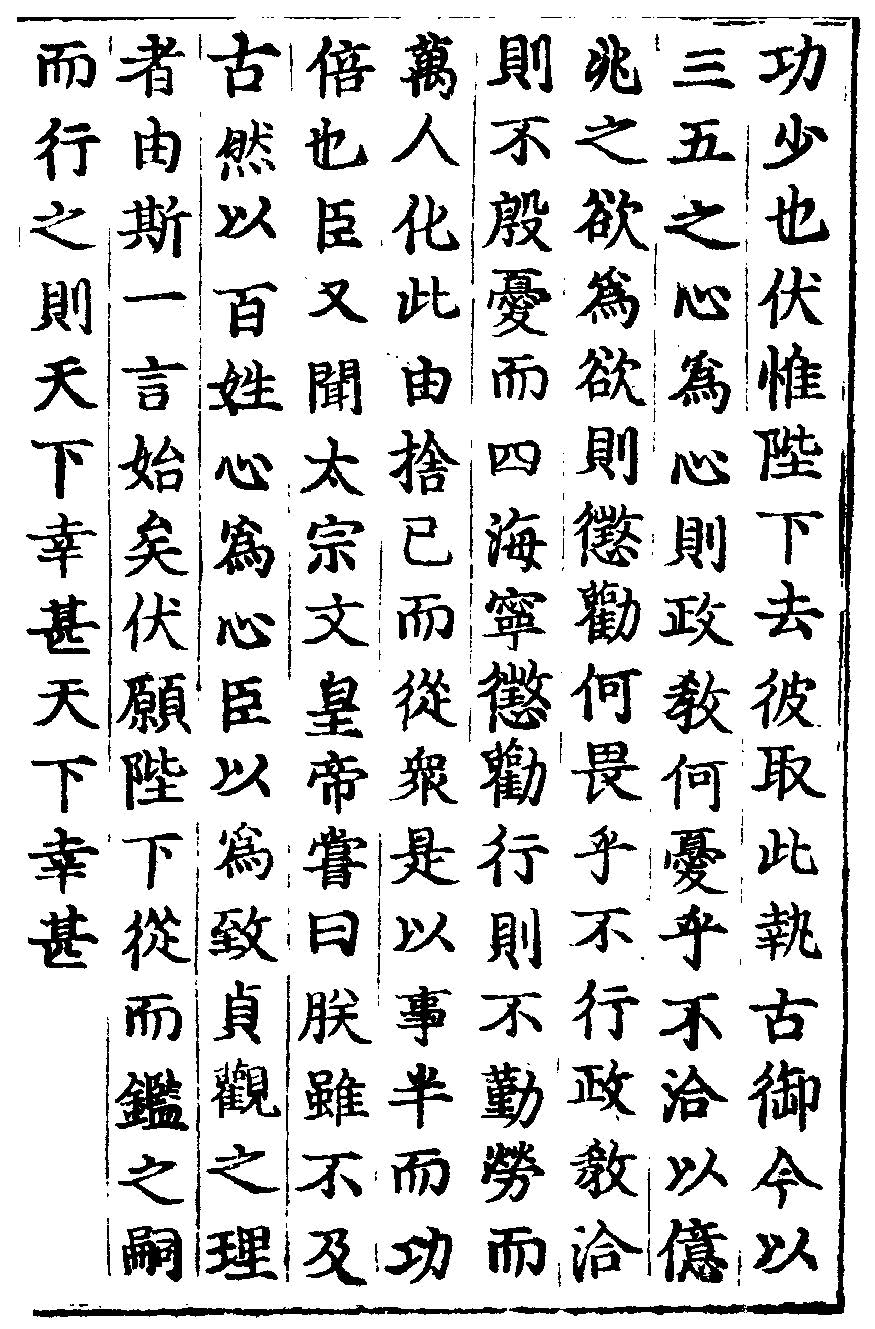 功少也伏惟陛下去彼取此執古御今以
三五之心為心則政教何憂乎不洽以億
兆之欲為欲則懲勸何畏乎不行政教洽
則不殷憂而四海寧懲勸行則不勤勞而
萬人化此由捨已而從眾是以事半而功
倍也臣又聞太宗文皇帝嘗曰朕雖不及
古然以百姓心為心臣以為致貞觀之理
者由斯一言始矣伏願陛下從而鑑之嗣
而行之則天下幸甚天下幸甚